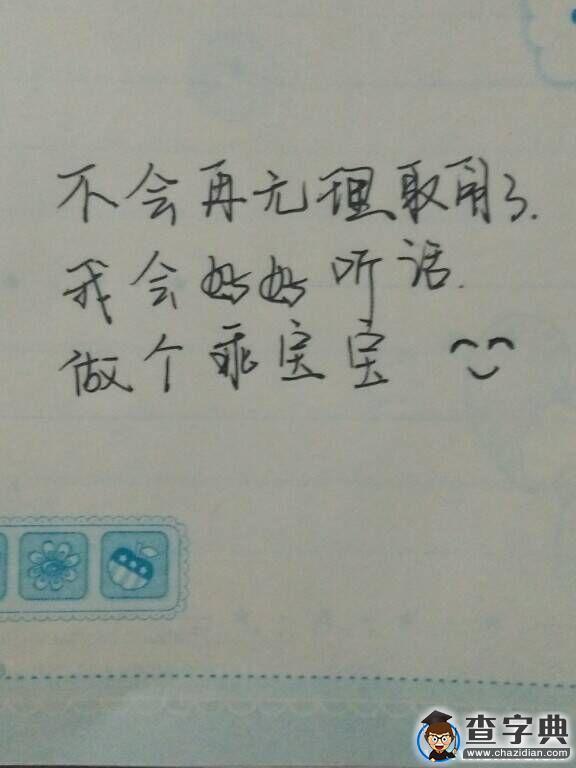 不会再无理取闹了.
我会好好听话.
做个乖宝宝
查字典
www.chazidian.com